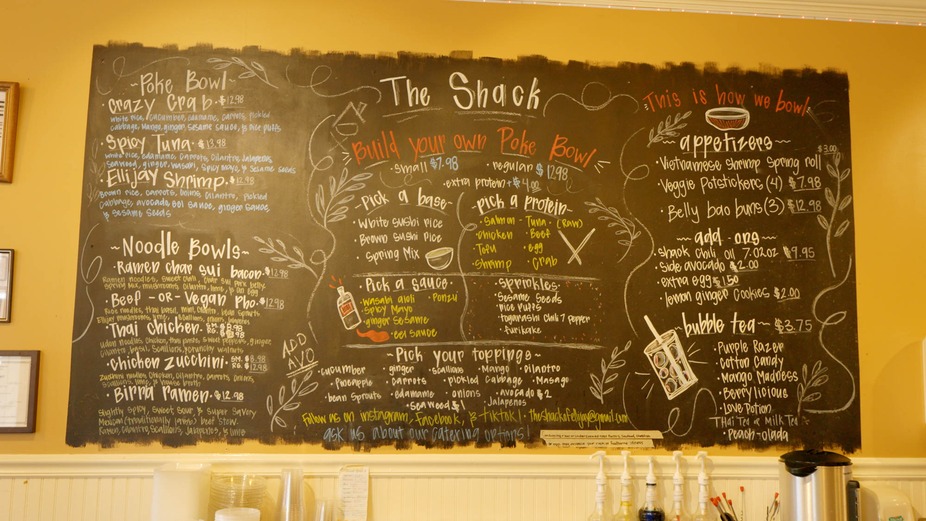 ~Poke Bowl~
Crazy Crab $12.98
White rice, cucumber, edamame, carrots, pickled
cabbage, mango, ginger sesame sauce, & rice puffs
Spicy Tuna $13.98
white rice, edamame, carrots, cilantro, jalapeños,
seaweed, ginger, wasabi, spicy mayo, & sesame seeds
Ellijay Shrimp $12.98
Brown rice, carrots, onions, cilantro, pickled
cabbage, avocado, eel sauce, ginger sauce,
& sesame seeds
~Noodle Bowls~
•Ramen char sui bacon $12.98
Ramen noodles, sweet chili, char sui pork belly,
Spring mix,
•Beef -or- Vegan Pho $12.98
Rice noodles, thai basil, mint, cilantro,
•Thai Chicken
udon noodles, chicken, sweet peppers, ginger,
cilantro, basil, scallions, & crunchy
•Chicken Zucchini
Zucchini noodles, chicken, cilantro, carrots, onions,
•Birria Ramen $12.98
Slightly spicy, sweet, sour, & super savory
Mexican (traditionally lamb) beef stew.
Ramen, cilantro, scallions, jalapeños, & lime
The Shack
Build your own Poke Bowl
•small $7.98 •regular $12.98
•extra protein + $4.00
~Pick a base~
•White sushi rice
•Brown sushi rice
•Spring Mix
~Pick a protein~
•Salmon •Tuna (Raw)
•Chicken •Beef
•Tofu •egg
•Shrimp •Crab
~Pick a sauce~
•wasabi aioli •Ponzu
•Spicy Mayo
•ginger sesame
•eel sauce
Sprinkles~
•Sesame Seeds
•Rice Puffs
•Togarashi Chili 7 Pepper
•furikake
ADD
AVO
~Pick your toppings~
•cucumber •ginger •scallions •Mango •Cilantro
•Pineapple •carrots •pickled cabbage •Masago
•bean sprouts •edamame •onions •avocado $2
•Seaweed $ •Jalapeños
Follow us on instagram, facebook, & tiktok! theshackofellijay@gmail.com
ask us about our catering options!
This is how we bowl
~appetizers~
•Vietnamese Shrimp Spring roll $3.00
•Veggie Potstickers (4) $7.98
•Belly bao buns (3) $12.98
~add ons~
•Shack Chili Oil 7.02oz $9.95
•Side avocado $2.00
•extra egg $1.50
•lemon ginger cookies $2.00
~bubble tea~ $3.75
•Purple Razer
•Cotton Candy
•Mango Madness
•Berrylicious
•Love Potion
•Thai Tea & Milk Tea
•Peach-olada